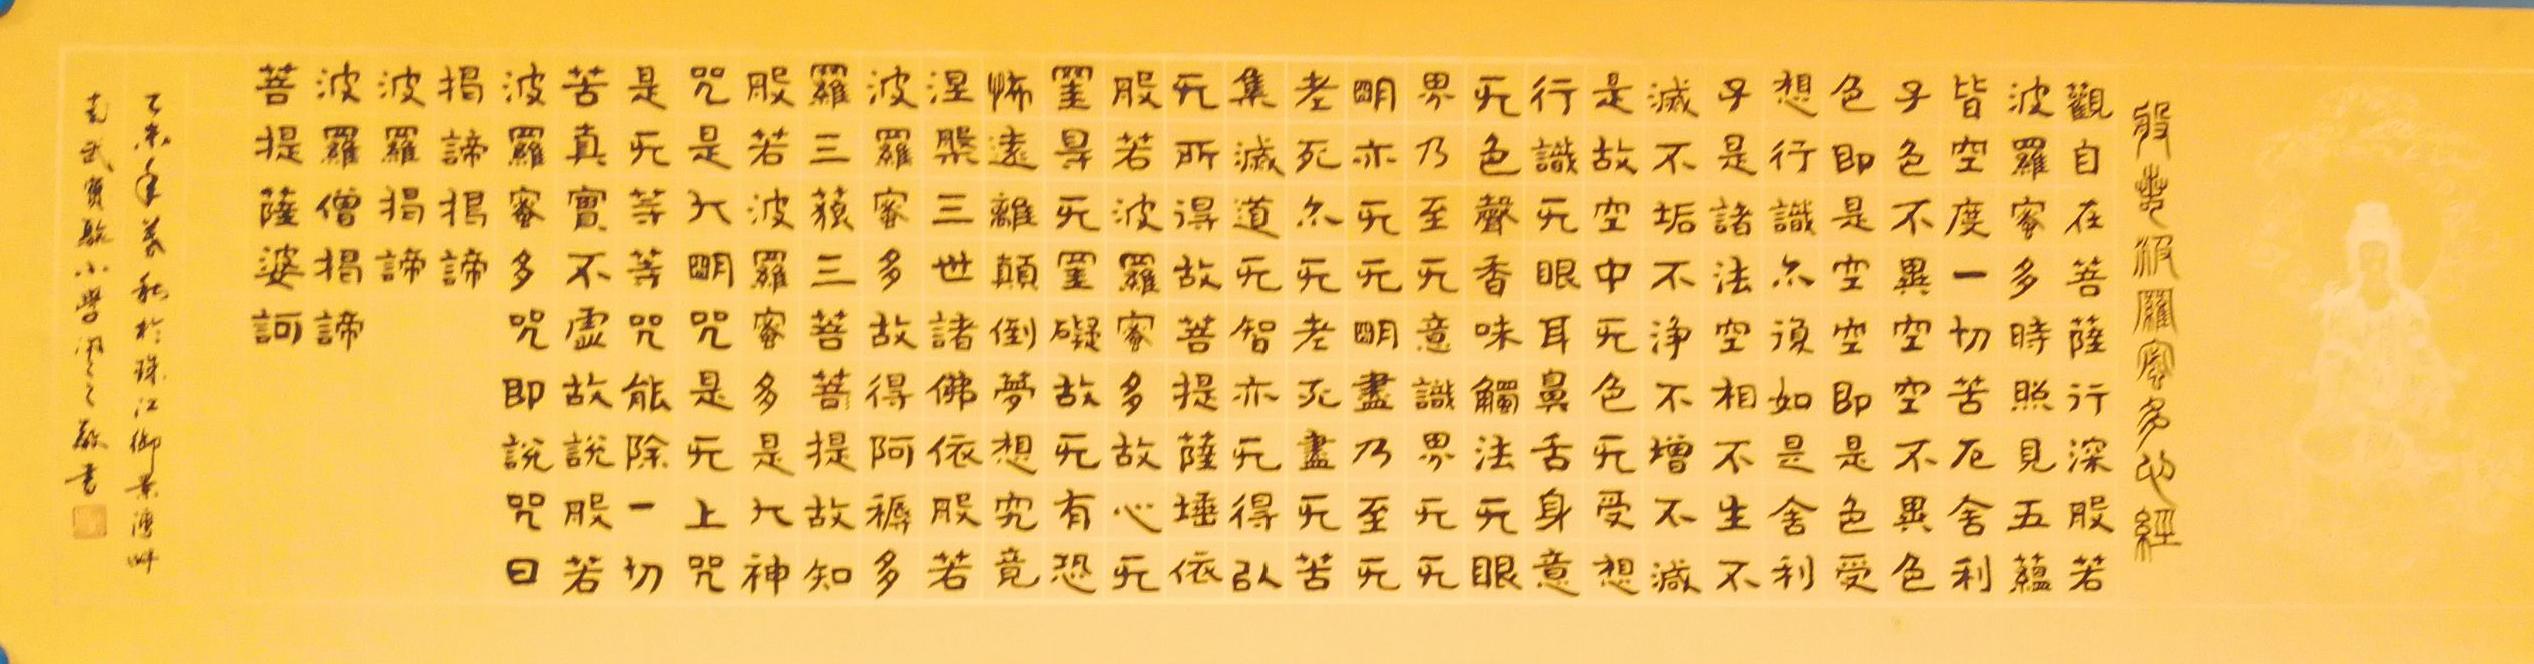 般若波羅蜜多心經
觀自在菩薩行深般若
波羅蜜多時照見五蘊
皆空度一切苦厄舍利
子色不異空空不異色
色即是空空即是色受
想行識尒復如是舍利
子是諸法空相不生不
滅不垢不淨不增不減
是故空中无色无受想
行識无眼耳鼻舌身意
无色聲香味觸法无眼
界乃至无意識界无无
明亦无无明盡乃至无
老死尒无老死盡无苦
集滅道无智亦无得以
无所得故菩提薩埵依
般若波羅蜜多故心无
罣导无罣礙故无有恐
怖遠離顛倒夢想究竟
涅槃三世諸佛依般若
波羅蜜多故得阿耨多
羅三藐三菩菩提故知
般若波羅蜜多是大神
咒是大明咒是无上咒
是无等等咒能除一切
苦真實不虛故說般若
波羅蜜多咒即說咒曰
揭諦揭諦
波羅揭諦
波羅僧揭諦
菩提薩婆訶
乙未年暮秋於珠江御景灣畔
南武實驗小學敬書